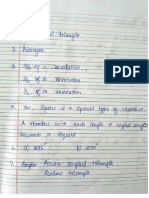 triangle
3. Pentagon
4. 3/4 of a revolution,
1/2 of a revolution
1/4 of a revolution
5. Yes, Square is a special type of rhombus.
A rhombus with each angle a right angle
becomes a square
6. a)
7. Angles Acute angled triangle
Scalene triangle